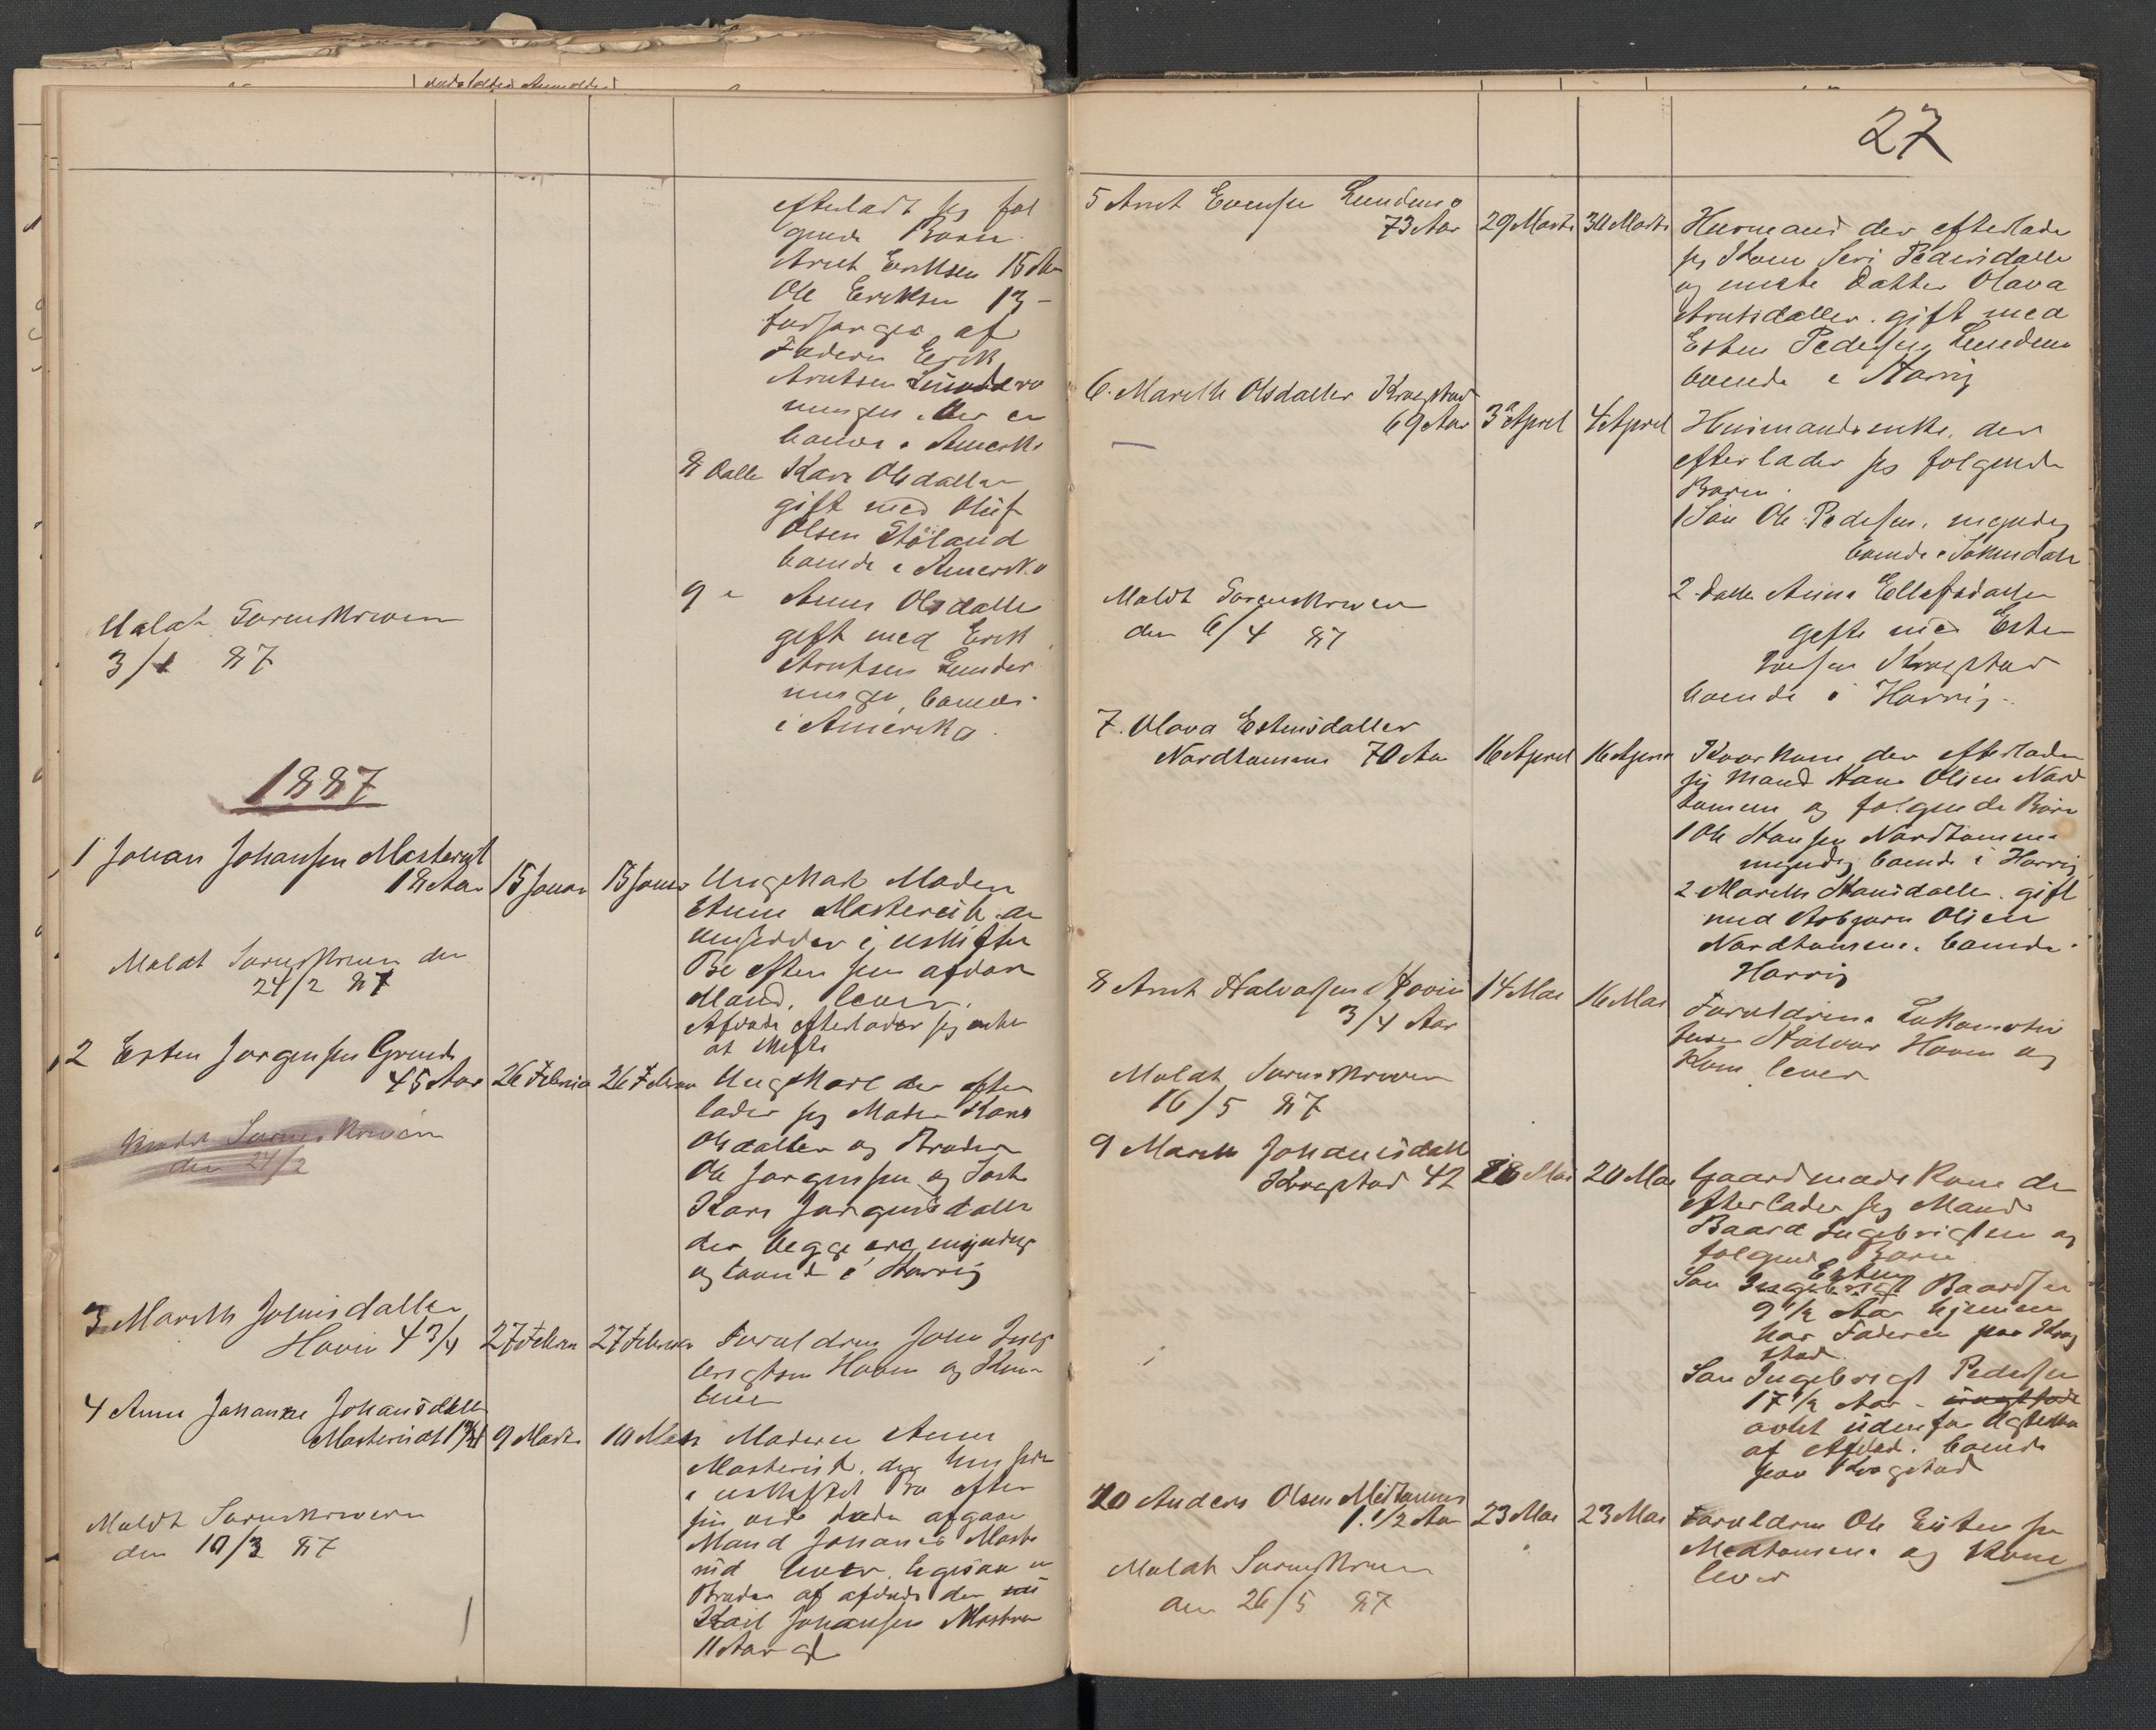 efterladt sig føl
gende Børn.
Arnt Eriksen 15 Aar
Ole Eriksen 13 –
forsørges af
Faderen Erik
Arntsen
der er
boende i Amerika
8 Datter Kari Olsdatter
gift med Oluf
Olsen Støland
boende i Amerika
9 " Anne Olsdatter
gift med Erik
Arntsen
boende
i Amerika.
Meldt Sorenskriveren
3/1 87
1887
1 Johan Johansen Masterud
18 Aar 15 Januar 15 Januar Ungkarl Moderen
Anne der
hensidder i uskiftet
Bo efter sin afdøde
Mand, lever.
Afdøde efterlader sig intet
at skifte
Meldt Sorenskriveren den
24/2 87
2 Esten Jørgensen Grindt
45 Aar 26 Februar 26 Februar Ungkarl der efter
lader sig Moder Kari
Olsdatter og Broder
Ole Jørgensen og Søster
Kari Jørgensdatter
der begge ere myndige
og boende i Horrig
Meldt Sorenskriveren
den 24/2
3 Marith Johnsdatter
Hovin 4 3/4 27 Februar 27 Februar Forældrene John Inge
brigtsen Hovin og Kone
lever
4 Anne Johanne Johansdatter
9 Marts 10 Marts Moderen Anne
der hensidder
i uskiftet Bo efter
sin ved døden afgaaede
Mand Johannes
lever. ligesaa en
Broder af afdøde der
Johansen
11 Aar gl
Meldt Sorenskriveren
den 10/3 87
27
5 Arnt Evensen
73 Aar 29 Marts 30 Marts Huusmand der efterlader
sig Kone Siri Pedersdatter
og eneste Datter Olava
Arntsdatter. gift med
Esten Pedersen
boende i Horrig
6. Marith Olsdatter Kragstad
69 Aar 3 April 4 April Husmandsenke, der
efterlader sig følgende
Børn.
1 Søn Ole Pedersen, myndig
boende i Soknedalen
2 Datter Anne Ellefsdatter
gift med Esten
Kragstad
boende i Horrig.
Meldt Sorenskriveren
den 6/4 87
7. Olava Estensdatter
Nordtømme 70 Aar 16 April 16 April Kaarkone der efterlader
sig Mand Hans Olsen Nord
tømme og følgende Børn
1 Ole Hansen Nordtømme
myndig boende i Horrig
2 Marith Hansdatter. gift
med Asbjørn Olsen
Nordtømme. boende i
Horrig
8 Arnt Halvorsen Hovin 14 Mai 16 Mai
3/4 Aar
Forældrene Lokomotiv
Halvor Hovin og
Kone lever
Meldt Sorenskriveren
16/5 87
9 Marith Johannesdatter
Kragstad 42 18 Mai 20 Mai Gaardmands Kone der
efterlader sig Mand
Baard Ingebrigtsen og
følgende Børn
Esten
Søn Ingebrigt Baardsen
9 1/2 Aar hjemme
hos Faderen paa Krag
stad.
Søn Ingebrigt Pedersen
17 1/2 Aar –
avlet udenfor Ægteskab
af Afdøde. boende
paa Kragstad
10 Anders Olsen Midttømme
1. 1/2 Aar 23 Mai 23 Mai Forældrene Ole Estensen
Midttømme og Kone
lever
Meldt Sorenskriveren
den 26/5 87